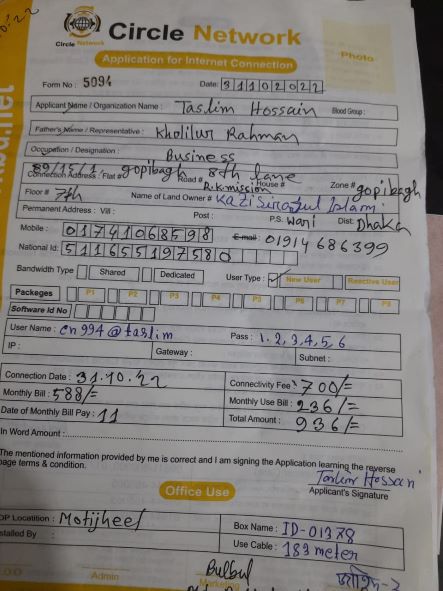 Circle Network
Circle Network
Application for Internet Connection
Photo
Form No : 5094
Date: 31102022
Applicant Name / Organization Name : Taslim Hossain Blood Group :
Father's Name / Representative : Kholilur Rahman
Occupation / Designation : Business
89/15/1 gopibagh 8th lane
Connection Address : Flat # Road # House # Zone # gopibagh
R.k mission
Floor # 7th Name of Land Owner # Kazi Sirajul Islam
Permanent Address : Vill : Post : P.S. Wari Dist: Dhaka
Mobile : 01741068598 E-mail : 01914686399
National Id: 511655197580
Bandwidth Type Shared Dedicated User Type : New User Reactive User
Packeges P1 P2 P3 P4 P5 P6 P7 P8
Software Id No
User Name : cn994@taslim Pass : 1.2,3,4,5,6
IP : Gateway : Subnet :
Connection Date : 31.10.22 Connectivity Fee : 700/=
Monthly Bill : 588/= Monthly Use Bill : 236/=
Date of Monthly Bill Pay : 11 Total Amount : 936/=
In Word Amount :
The mentioned information provided by me is correct and I am signing the Application learning the reverse
page terms & condition.
Taslim Hossain
Applicant's Signature
Office Use
OP Location : Motijheel Box Name : ID-01378
stalled By : Use Cable : 183 meter
Bulbul
Admin Marketing